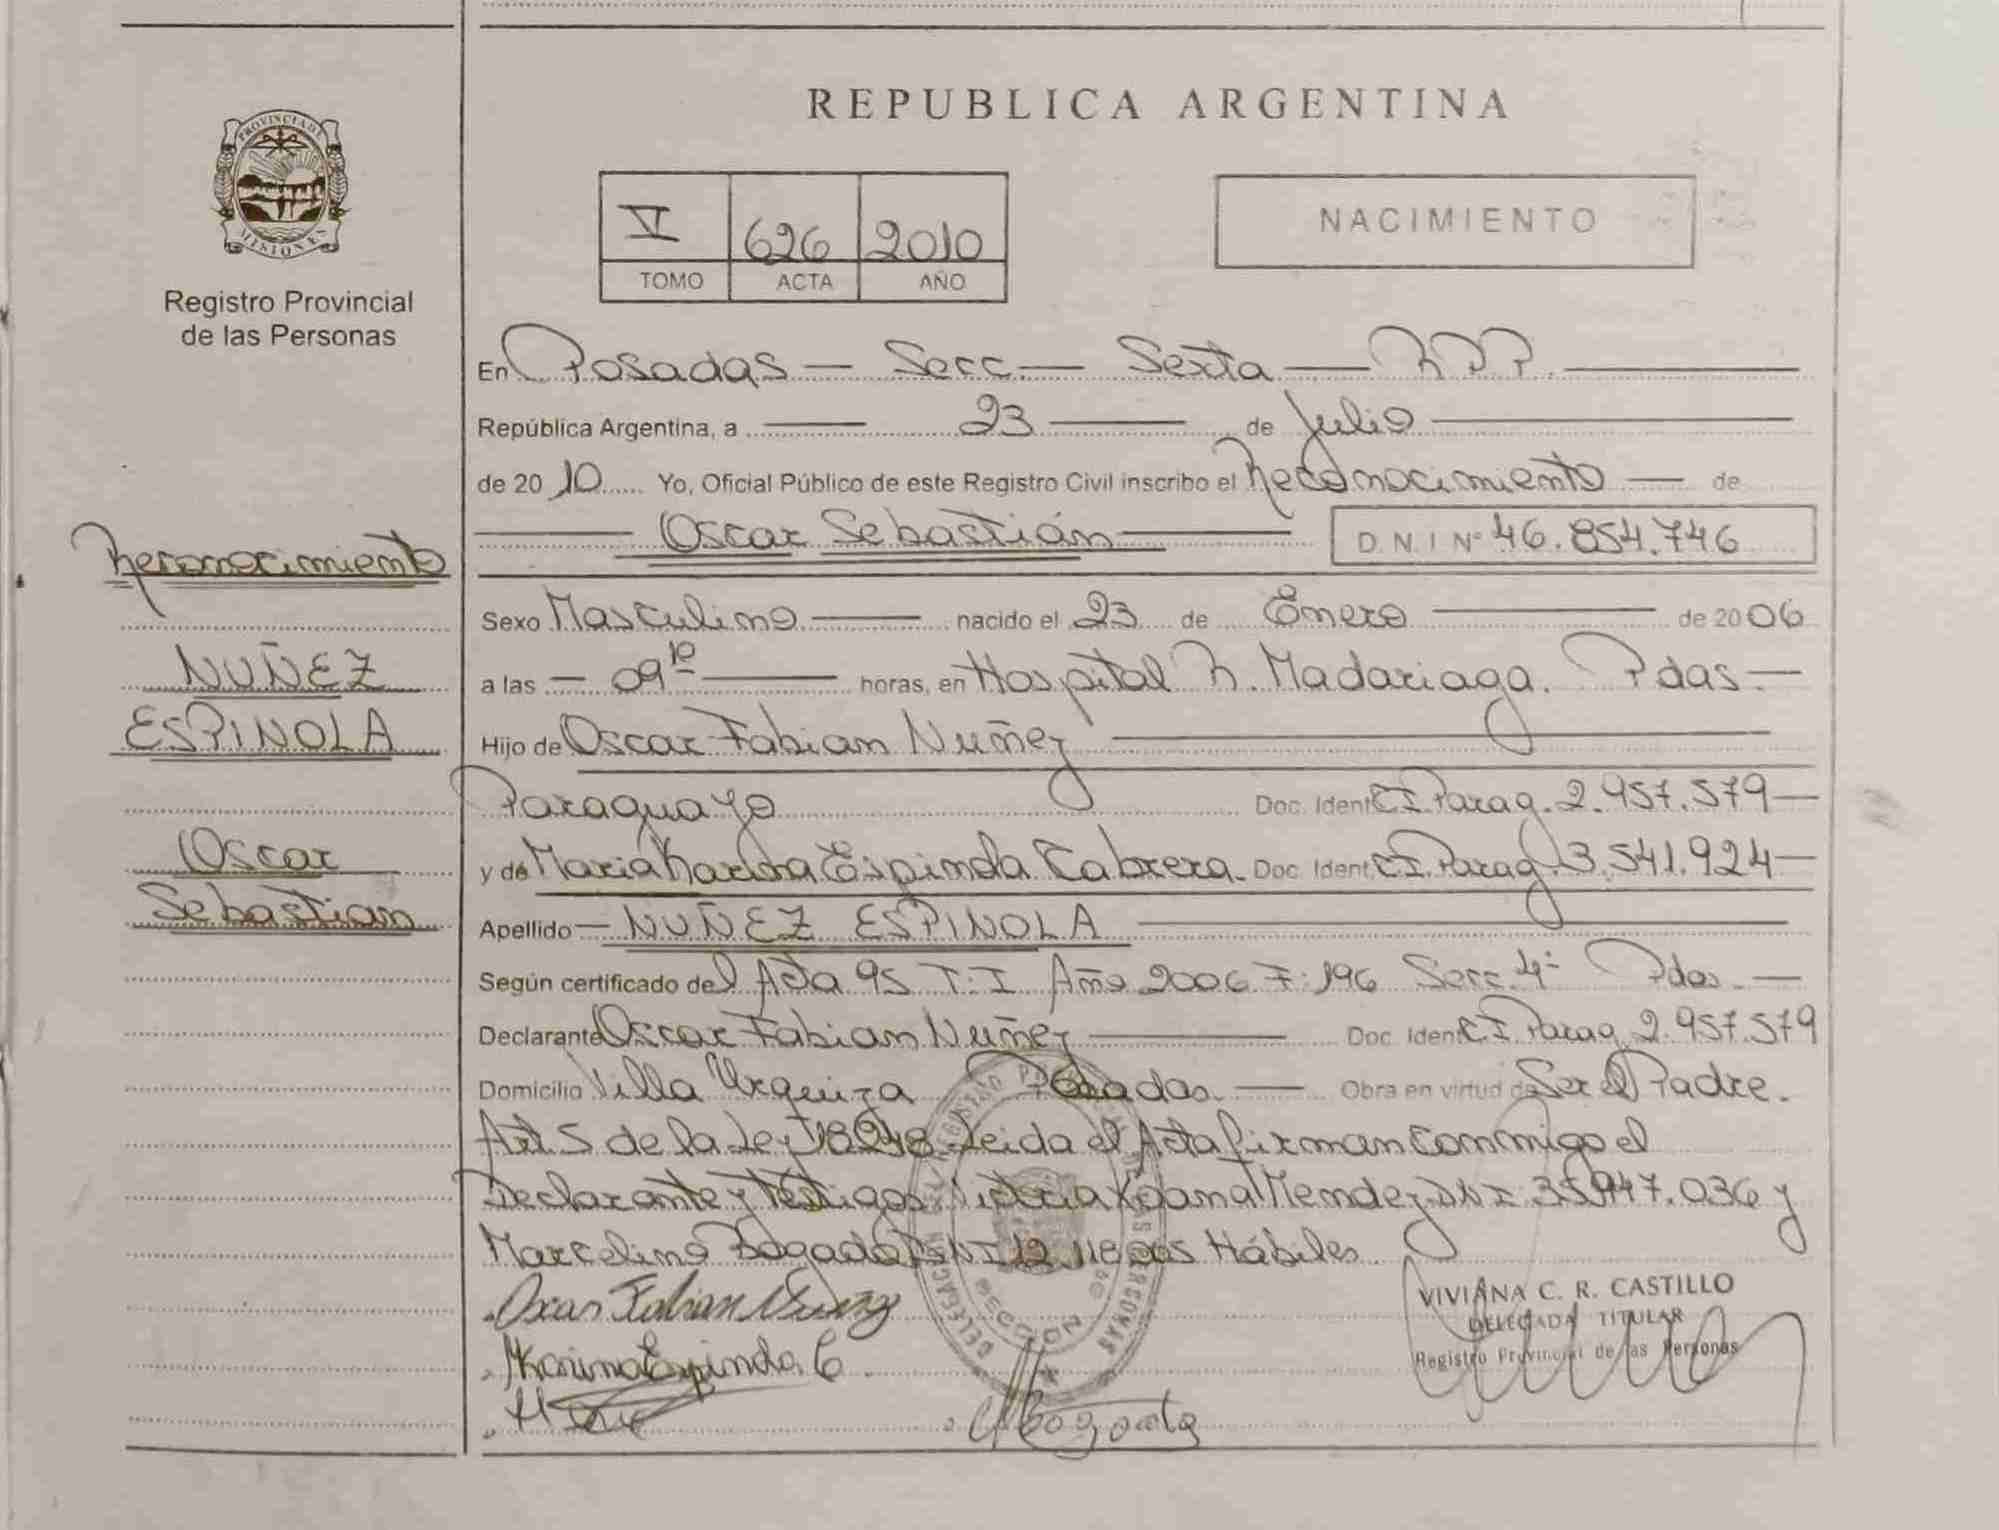 PROVINCIA DE
MISIONES
Registro Provincial
de las Personas
Reconocimiento
NUÑEZ
ESPINOLA
Oscar
Sebastian
REPUBLICA ARGENTINA
V 626 2010
TOMO ACTA AÑO
NACIMIENTO
En Posadas — Secc. — Sexta — R P P.
República Argentina, a 23 de Julio
de 2010 Yo, Oficial Público de este Registro Civil inscribo el Reconocimiento — de
Oscar Sebastián D.N.I Nº 46.854.746
Sexo Masculino nacido el 23 de Enero de 2006
a las — 09 10 — horas, en Hospital R. Madariaga. Pdas. —
Hijo de Oscar Fabian Nuñez
Paraguayo Doc. Ident. C.I. Parag. 2.957.579 —
y de Maria Karina Espinola Cabrera. Doc. Ident. C.I. Parag. 3.541.924 —
Apellido — NUÑEZ ESPINOLA
Según certificado del Acta 95 T: I Año 2006 F: 196 Secc. 4ª Pdas. —
Declarante Oscar Fabian Nuñez Doc. Ident. C.I. Parag. 2.957.579
Domicilio Villa Urquiza Posadas. — Obra en virtud de Ser el Padre.
Art. 5 de la Ley 18248 Leida el Acta firman conmigo el
Declarante y Testigos Victoria Yoana Mendez DNI 35.947.036 y
Marcelino Bogado DNI 12.118.205 Hábiles
Oscar Fabian Nuñez
Karina Espinola C
VIVIANA C. R. CASTILLO
DELEGADA TITULAR
Registro Provincial de las Personas